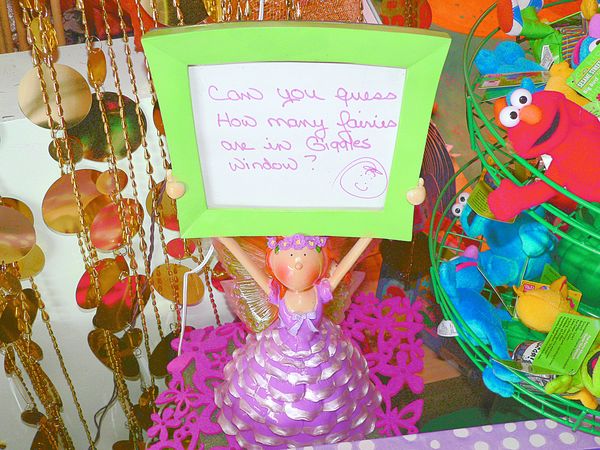 Can you guess
How many fairies
are in Giggles
window?